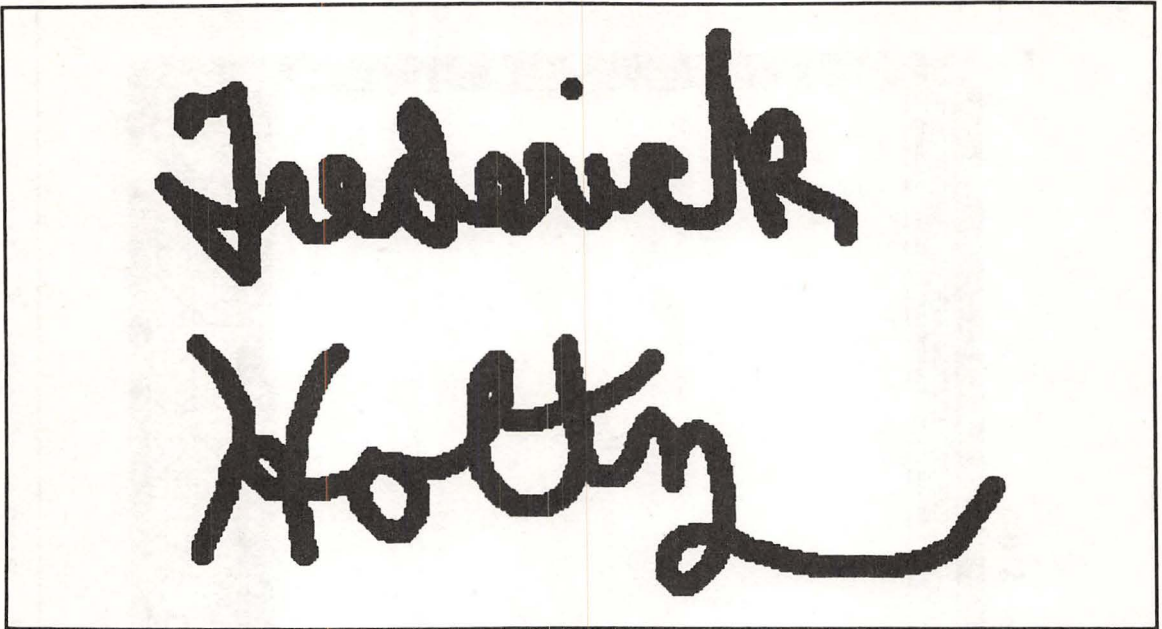 Frederick
Holtz